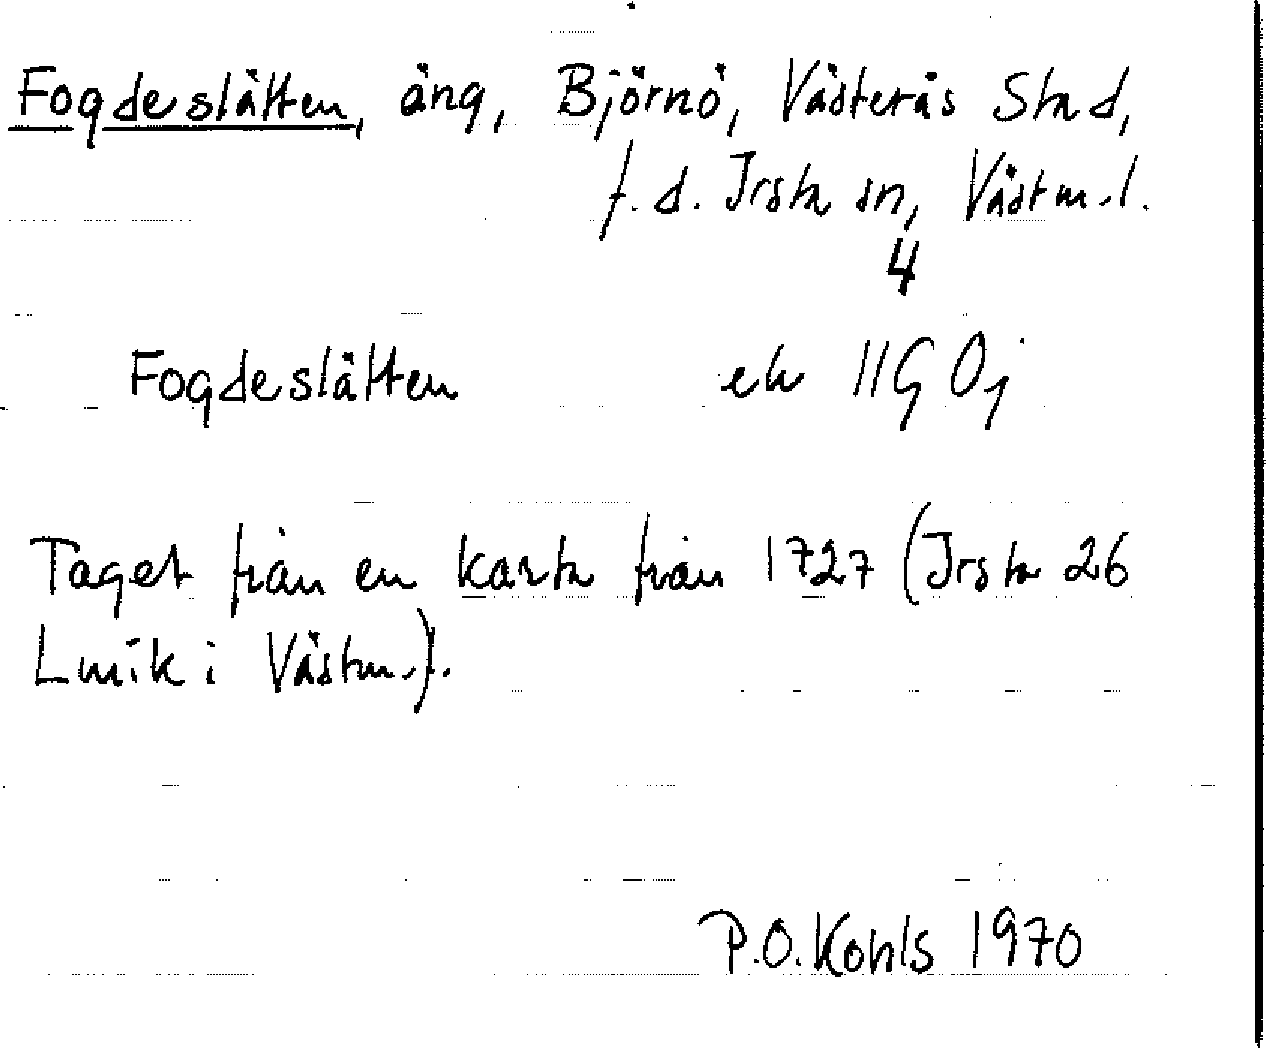 Fogdeslätten, äng, Björnö, Västerås Stad,
f.d. Irsta sn, Västm.l.
4
Fogdeslätten ek 11G 0j
Taget från en karta från 1727 (Irsta 26
Lmik i Västm.).
P.O. Kohls 1970